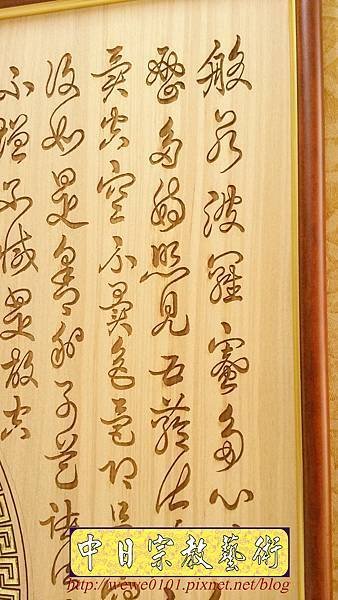 般若波羅蜜多心
蜜多時照見五蘊皆
異空空不異色色即是
復如是舍利子是諸法
不增不減是故空
中日宗教藝術
http://wewe0101.pixnet.net/blog